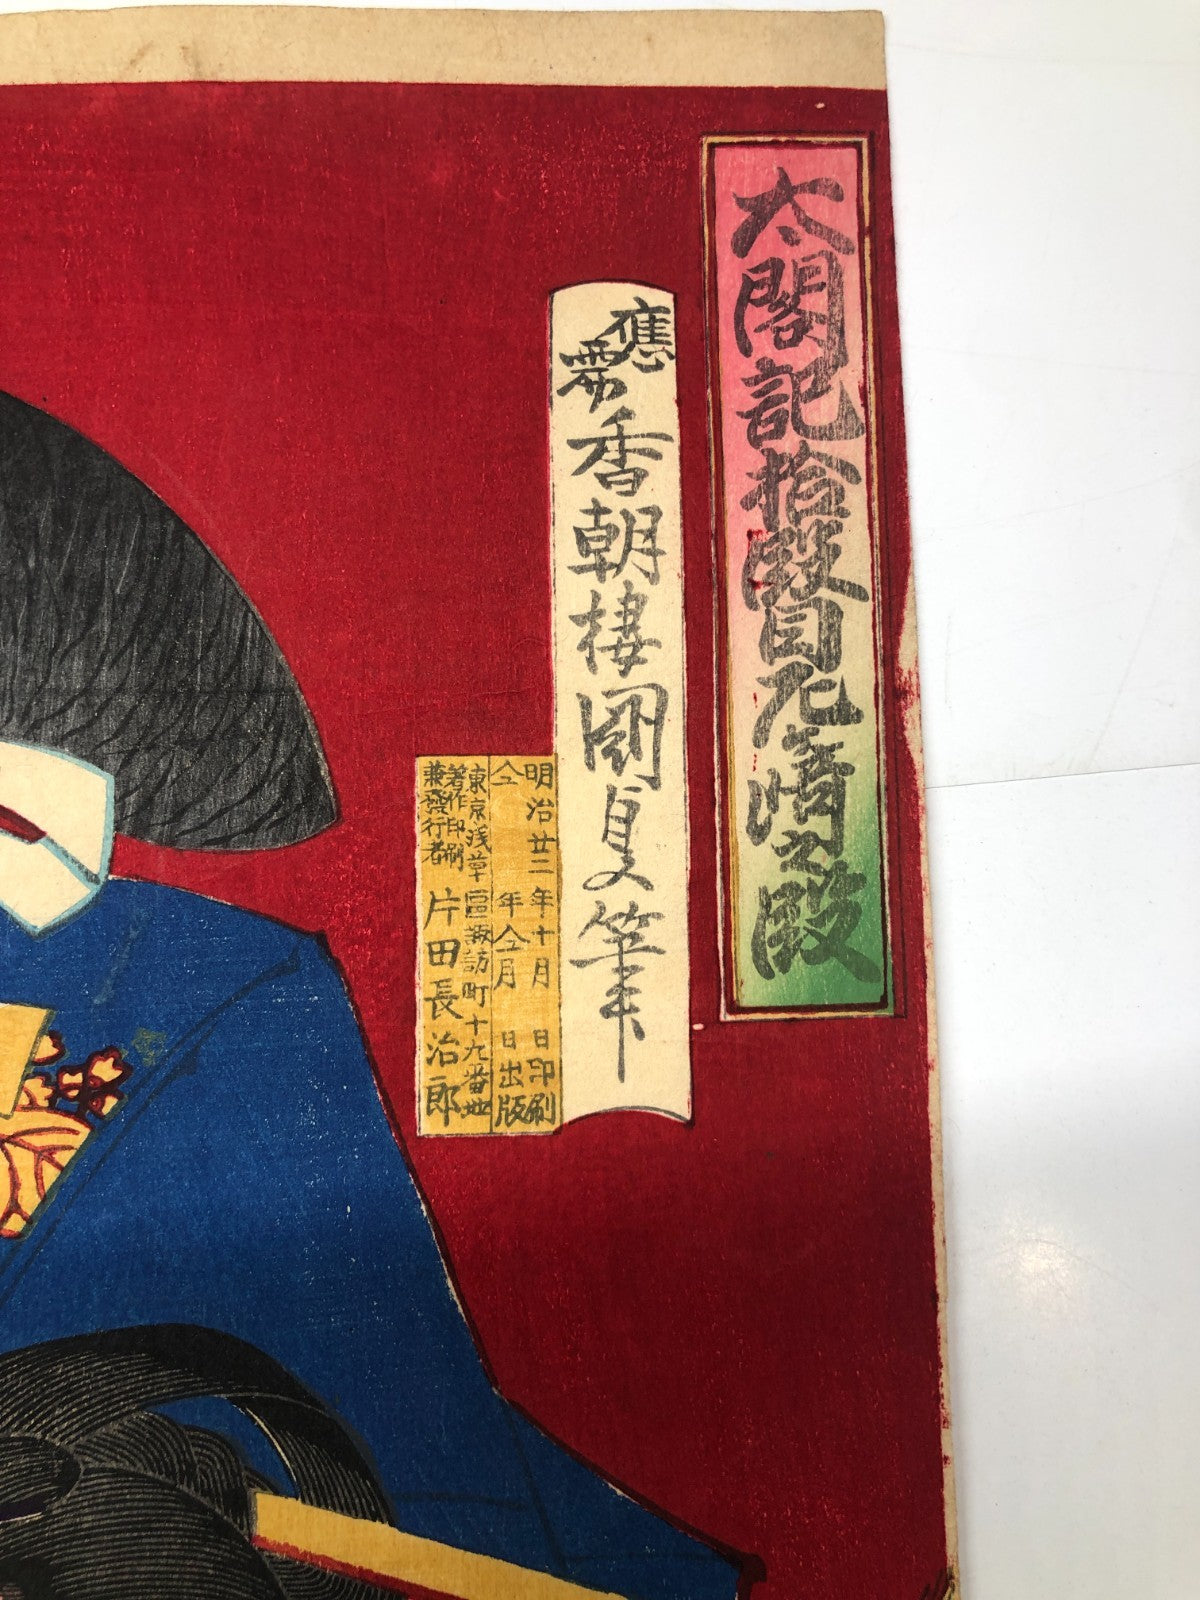 太閤記拾段目尼ヶ崎之段
應需
香朝楼國貞筆
明治廿二年十月　日印刷
仝　年仝月　日出版
東京浅草區諏訪町十九番地
著作印刷
兼發行者
片田長治郎